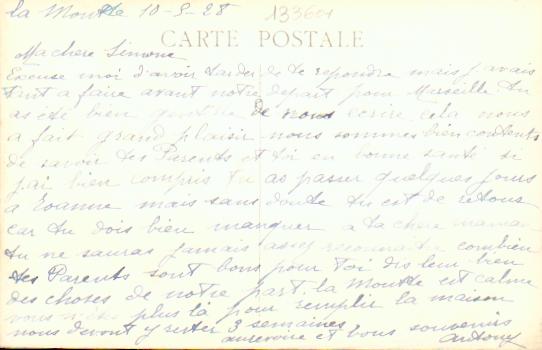 la Moutte 10-8-28 133601
CARTE POSTALE
Ma chere Simone
Excuse moi d'avoir tarder de te repondre mais j'avais
tout a faire avant notre depart pour Marseille tu
as été bien gentille de nous ecrire cela nous
a fait grand plaisir nous sommes bien contents
de savoir tes Parents et toi en bonne santé si
j'ai bien compris tu as passer quelques jours
a Roanne mais sans doute tu est de retour
car tu dois bien manquer a ta chere maman
tu ne sauras jamais assez reconnaitre combien
tes Parents sont bons pour toi dis leur bien
des choses de notre part la Moutte est calme
vous n'etes plus là pour remplir la maison
nous devont y rester 3 semaines
aurevoire et bons souvenirs